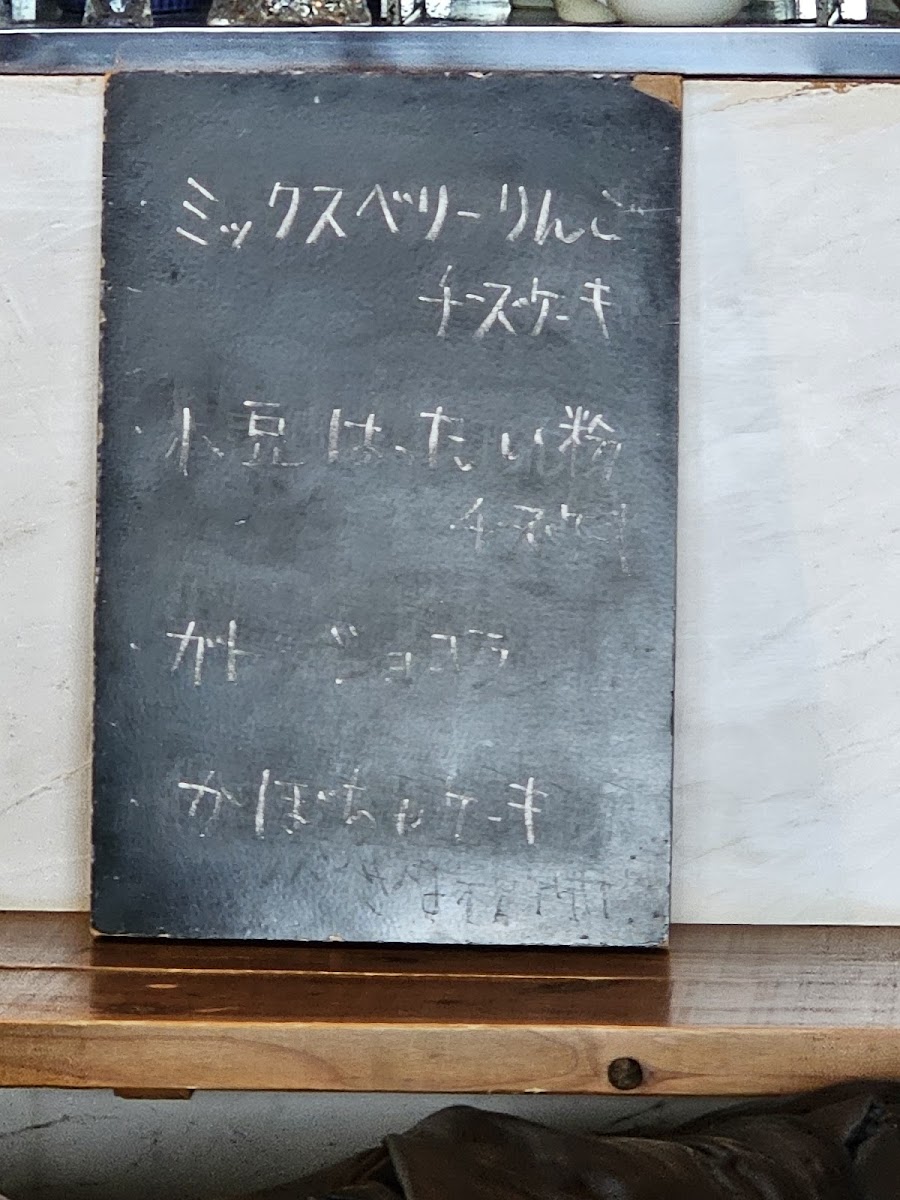 ミックスベリーりんご
チーズケーキ
・小豆はったい粉
チーズケーキ
・ガトーショコラ
・かぼちゃケーキ